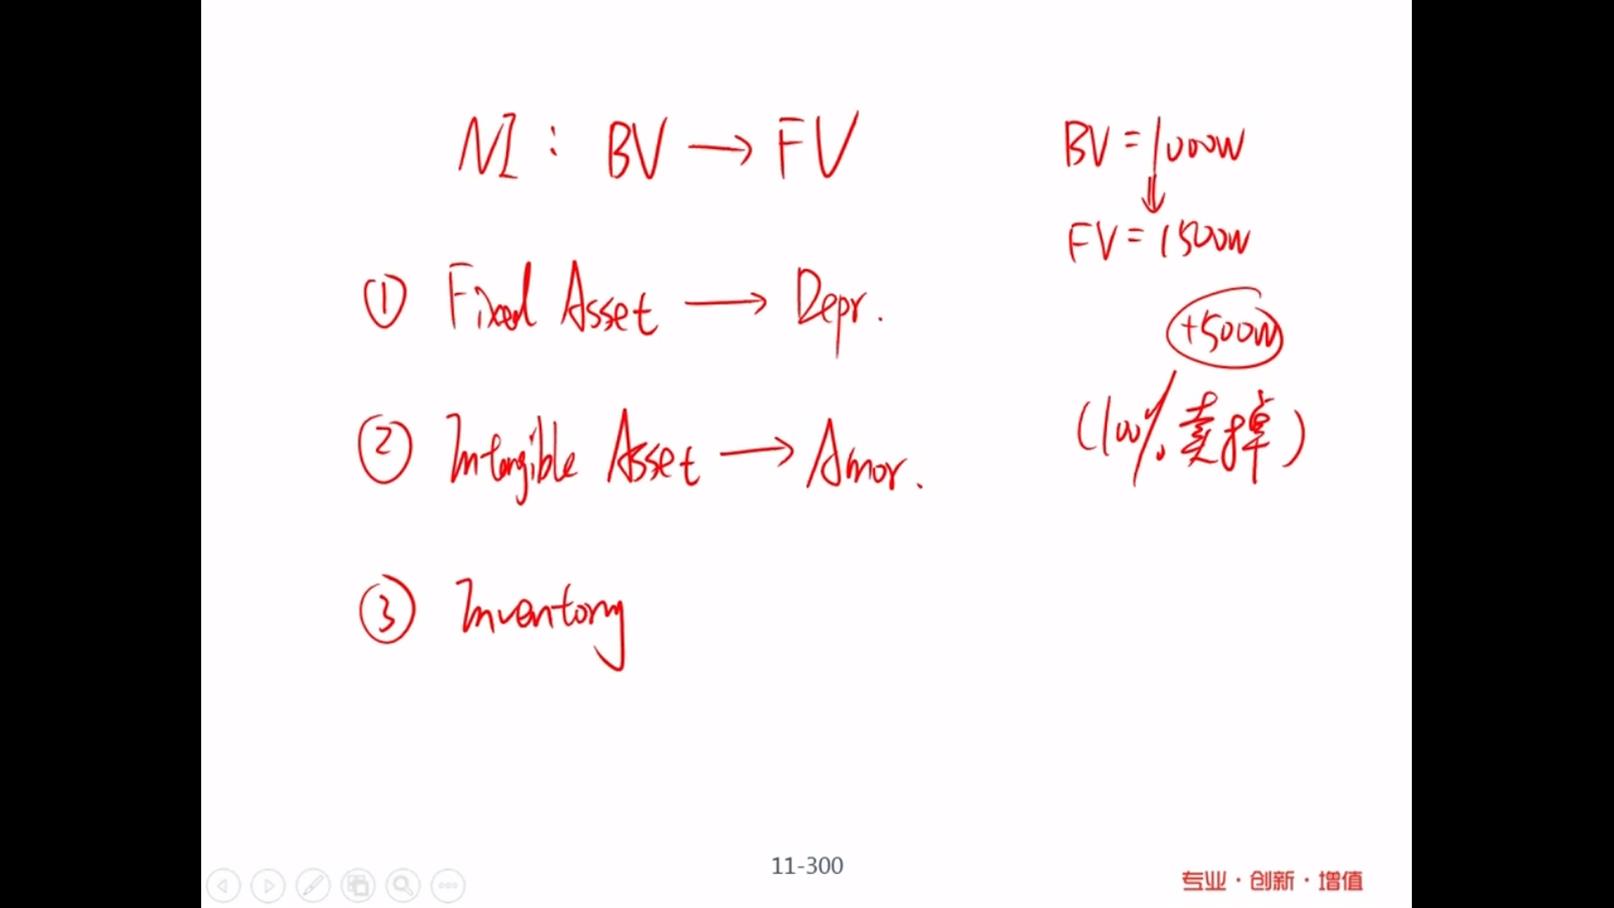 NI : BV → FV
① Fixed Asset → Depr.
② Intangible Asset → Amor.
③ Inventory
BV = 1000W
↓
FV = 1500W
+500W
(100% 卖掉)
11-300
专业 · 创新 · 增值